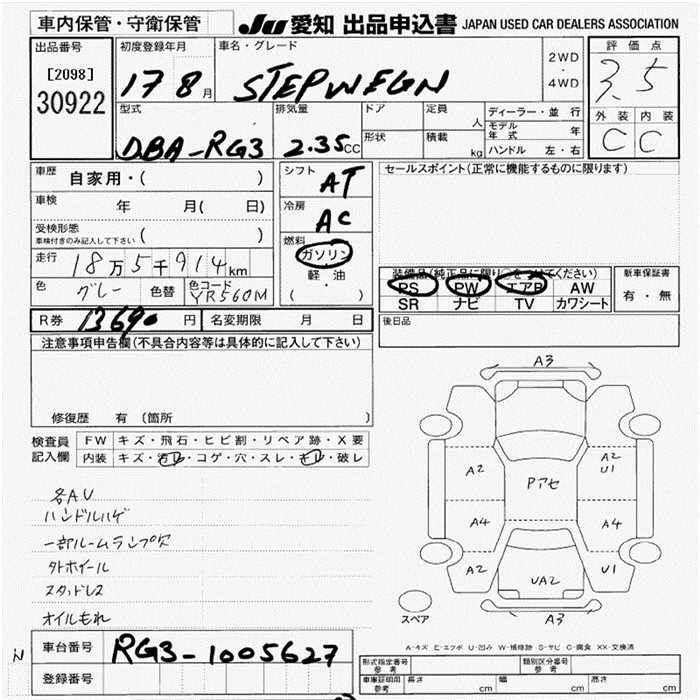 車内保管・守衛保管
JU 愛知 出品申込書 JAPAN USED CAR DEALERS ASSOCIATION
出品番号
[2098]
30922
初度登録年月
17 8月
車名・グレード
STEPWEGN
2WD
・
4WD
評価点
3.5
外装 内装
C C
型式
DBA-RG3
排気量
2.35CC
ドア
形状
定員
人
積載
kg
ディーラー・並行
モデル年式 年
ハンドル 左・右
車歴 自家用・( )
車検 年 月( 日)
受検形態
車検付きのみ記入して下さい ( )
走行 18万5千914km
色 グレー 色替 色コード YR560M
シフト
AT
冷房
AC
燃料
ガソリン
軽・油
( )
セールスポイント(正常に機能するものに限ります)
装備品(純正品に限り○をつけてください)
PS PW エアB AW
SR ナビ TV カワシート
新車保証書
有・無
R券 13690円 名変期限 月 日
後日品
注意事項申告欄(不具合内容等は具体的に記入して下さい)
修復歴 有 〔箇所
検査員
記入欄
FW キズ・飛石・ヒビ割・リペア跡・X要
内装 キズ・汚レ・コゲ・穴・スレ・キレ・破レ
各AU
ハンドルハゲ
一部ルームランプ欠
外ホイール
スタッドレス
オイルもれ
A3
A2
A2
U1
Pアセ
A4
A4
A2
UA2
U1
スペア
A3
A-キズ E-エクボ U-凹み W-補修跡 S-サビ C-腐食 XX-交換済
車台番号 RG3-1005627
登録番号
型式指定番号
参考
類別区分番号
参考
車庫証明用
参考
長さ cm 幅 cm 高さ cm